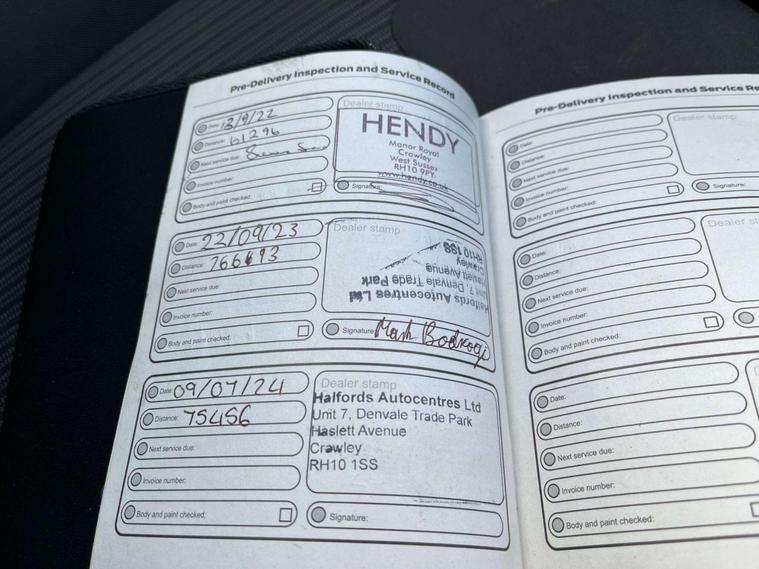 Pre-Delivery Inspection and Service Record
Date: 13/9/22
Distance: 61296
Next service due:
Invoice number:
Body and paint checked:
Dealer stamp
HENDY
Manor Royal
Crawley
West Sussex
RH10 9PY
www.hendy.co.uk
Signature:
Date: 22/09/23
Distance:
Next service due:
Invoice number:
Body and paint checked:
Dealer stamp
Halfords Autocentres Ltd
Unit 7, Denvale Trade Park
Haslett Avenue
Crawley
RH10 1SS
Signature: Mark
Date: 09/07/24
Distance: 75456
Next service due:
Invoice number:
Body and paint checked:
Dealer stamp
Halfords Autocentres Ltd
Unit 7, Denvale Trade Park
Haslett Avenue
Crawley
RH10 1SS
Signature:
Pre-Delivery Inspection and Service Re
Date:
Distance:
Next service due:
Invoice number:
Body and paint checked:
Dealer stamp
Signature:
Date:
Distance:
Next service due:
Invoice number:
Body and paint checked:
Dealer st
Date:
Distance:
Next service due:
Invoice number:
Body and paint checked: